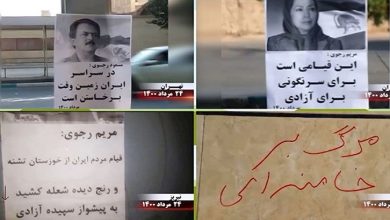 مسعود رجوی:
در سراسر
ایران زمین وقت
برخاستن است
تهران
مرداد ۱۴۰۰
مریم رجوی:
این قیامی است
برای سرنگونی
برای آزادی
تهران
مرداد ۱۴۰۰
مریم رجوی:
قیام مردم ایران از خوزستان تشنه
و رنج دیده شعله کشید
به پیشواز سپیده آزادی
تبریز
۲۴ مرداد ۱۴۰۰
مرگ بر
خامنه ای
۲۴ مرداد ۱۴۰۰